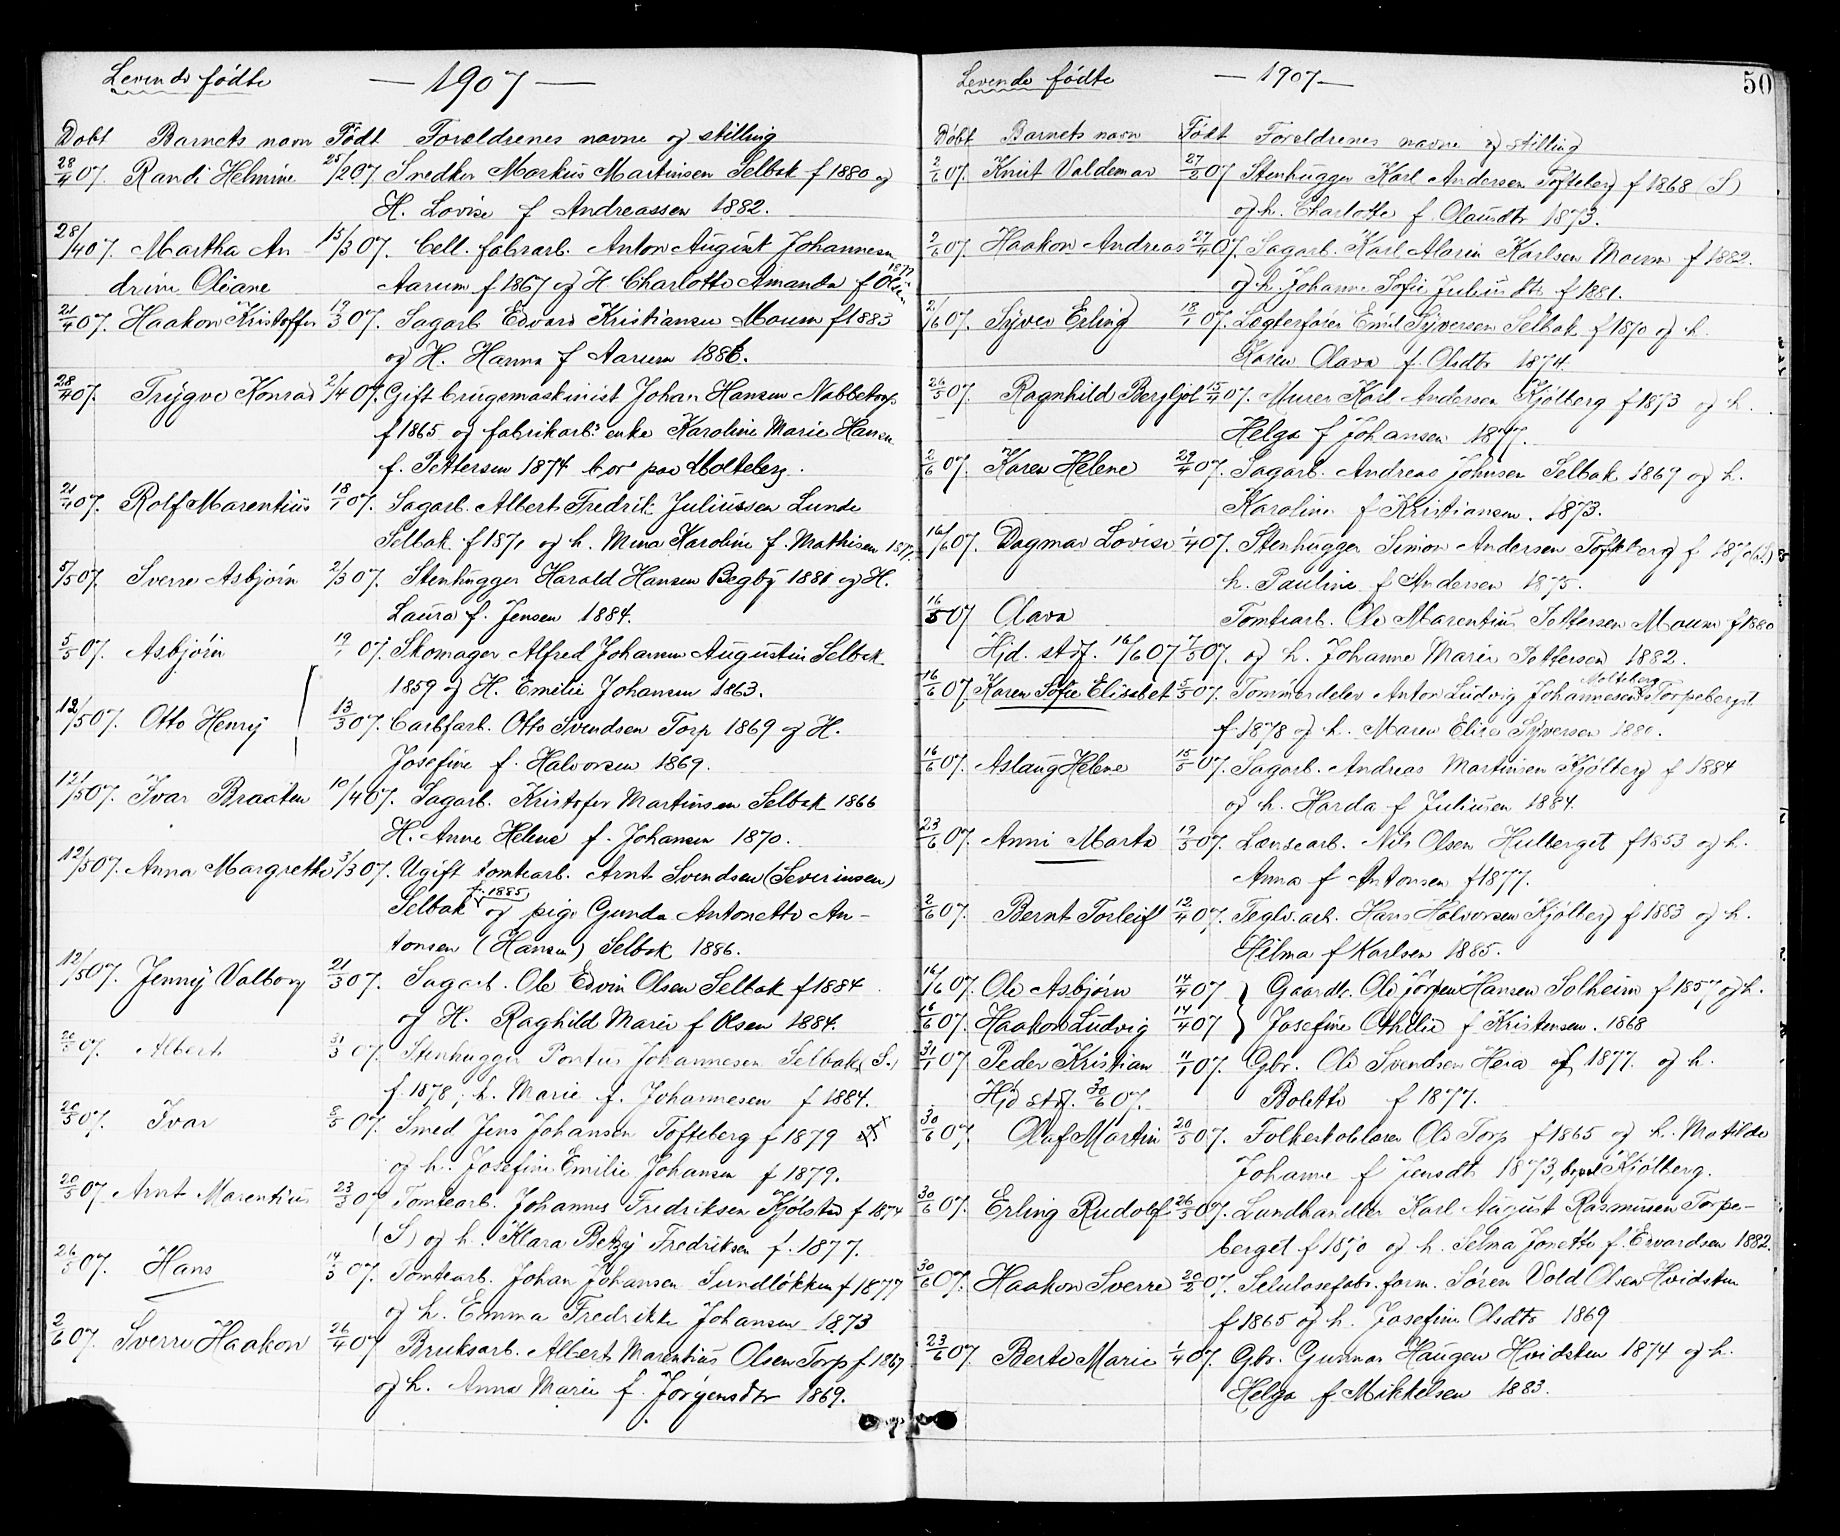 Levende fødte — 1907 —
Døbt Barnets navn Født Forældrenes navne og stilling
28/4 07. Randi Helmine 25/2 07 Snedker Markus Martinsen Selbak f 1880 og
H. Lovise f Andreassen 1882.
28/4 07. Martha An- 15/3 07. Cell. fabrarb. Anton August Johannesen
drine Oliane Aarum f 1867 og H Charlotte Amanda f Olsen 1877
21/4 07. Haakon Kristoffer 19/3 07. Sagarb. Edvard Kristiansen Moum f 1883
og H. Hanna f Aarum 1886.
28/4 07. Trygve Konrad 2/4 07. Gift brugsmaskinist Johan Hansen Nabbetorp
f 1865 og fabrikarb.s enke Karoline Marie Hansen
f. Pettersen 1874 bor paa Molteberg.
21/4 07. Rolf Marentius 18/1 07. Sagarb. Albert Fredrik Juliussen Lunde
Selbak f 1871 og h. Mina Karoline f. Mathisen 1877.
5/5 07. Sverre Asbjørn 2/3 07. Stenhugger Harald Hansen Begby 1881 og H.
Laura f. Jensen 1884.
5/5 07. Asbjørn 19/1 07. Skomager Alfred Johannes Augustin Selbak
1859 og H. Emilie Johansen 1863.
12/5 07. Otto Henry 13/3 07. Carbfarb. Otto Svendsen Torp 1869 og H.
Josefine f. Halvorsen 1869.
12/5 07. Ivar Braaten 10/4 07. Sagarb. Kristofer Martinsen Selbak 1866
H. Anne Helene f. Johansen 1870.
12/5 07. Anna Margrethe 3/3 07. Ugift tomtearb. Arnt Svendsen (Severinsen)
Selbak f. 1885 og pige Gunda Antonette An-
tonsen (Hansen) Selbak 1886.
12/5 07. Jenny Valborg 21/3 07. Sagarb. Ole Edvin Olsen Selbak f 1884
og H. Raghild Marie f Olsen 1884.
20/5 07. Albert 31/3 07. Stenhugger Pontus Johannesen Selbak (S.)
f 1878, h. Marie f. Johannesen f 1884.
20/5 07. Ivar 07. Smed Jens Johansen Tofteberg f 1879
og h. Josefine Emilie Johansen f 1879.
20/5 07 Arnt Marentius 23/3 07 Tomtearb. Johannes Fredriksen Kjølstad f 1874
(S) og h. Klara Betzy Fredriksen f. 1877.
26/5 07. Hans 14/3 07. Tomtearb. Johan Johansen Sundløkken f 1877
og h. Emma Fredrikke Johansen 1873
2/6 07. Sverre Haakon 26/4 07 Bruksarb. Albert Marentius Olsen Torp f 1867
og h. Anna Marie f. Jørgensdtr 1869.
Levende fødte — 1907 — 50
Døbt Barnets navn Født Forældrenes navne og stilling
2/6 07. Knut Valdemar 27/2 07 Stenhugger Karl Andersen Tofteberg f 1868 (S)
og h. Charlotte f. Olausdtr 1873.
2/6 07. Haakon Andreas 27/4 07. Sagarb. Karl Alarin Karlsen Moum f 1882.
og h. Johanne Sofie Juliusdtr f 1881.
2/6 07. Syver Erling 18/1 07. Lægterfører Emil Syversen Selbak f 1870 og h.
Karen Olava f. Olsdtr 1874.
26/5 07. Ragnhild Bergljot 15/4 07. Murer Karl Andersen Kjølberg f 1873 og h.
Helga f Johansen 1877.
2/6 07. Karen Helene 29/4 07. Sagarb. Andreas Johnsen Selbak 1867 og h.
Karoline f Kristiansen. 1873.
16/6 07. Dagmar Lovise 1/4 07. Stenhugger Simon Andersen Tofteberg f (S.)
h. Pauline f Andersen 1875.
16/5 07 Olava Tomtearb. Ole Marentius Pettersen Moum f 1880
Hjd. st.f. 16/6 07 7/5 07. og h. Johanne Marie Pettersen 1882.
16/6 07. Karen Sofie Elisabet 5/5 07. Tømmerdeler Anton Ludvig Johannesen Molteberg Torpeberget
f 1878 og h. Maren Elise Syversen 1880.
16/6 07. Aslaug Helene 15/5 07. Sagarb. Andreas Martinsen Kjølberg f 1884
og h. Harda f Juliusen 1884.
23/6 07. Anni Marta 19/5 07. Lænsearb. Nils Olsen Hulberget f 1853 og h.
Anna f Antonsen f 1877.
2/6 07. Bernt Torleif 12/4 07. Teglv.arb. Hans Halvorsen Kjølberg f 1883 og h.
Helma f Karlsen 1885.
16/6 07. Ole Asbjørn 14/4 07 } Gaardbr. Ole Jørgen Hansen Solheim f 1857 og h.
16/6 07. Haakon Ludvig 14/4 07 } Josefine Othelie f Kristensen. 1868
31/1 07. Peder Kristian 11/1 07. Gbr. Ole Svendsen Hera f 1877. og h.
Hjd st.f. 30/6 07. Bolette f 1877.
30/6 07. Olaf Martin 20/5 07. Folkeskolelærer Ole Torp f 1865 og h. Matilde
Johanne f Jensdtr 1873, bopæl Kjølberg.
30/6 07. Erling Rudolf 26/5 07. Landhandler Karl August Rasmussen Torpe-
berget f 1870 og h. Selma Jonette f. Ervardsen 1882.
30/6 07. Haakon Sverre 20/2 07. Selulosefabr. form. Søren Vold Olsen Hvidsten
f 1865 og h. Josefine Olsdtr 1869
23/6 07. Berte Marie 1/4 07. Gbr. Gunnar Haugen Hvidsten 1874 og h.
Helga f Mikkelsen 1883.